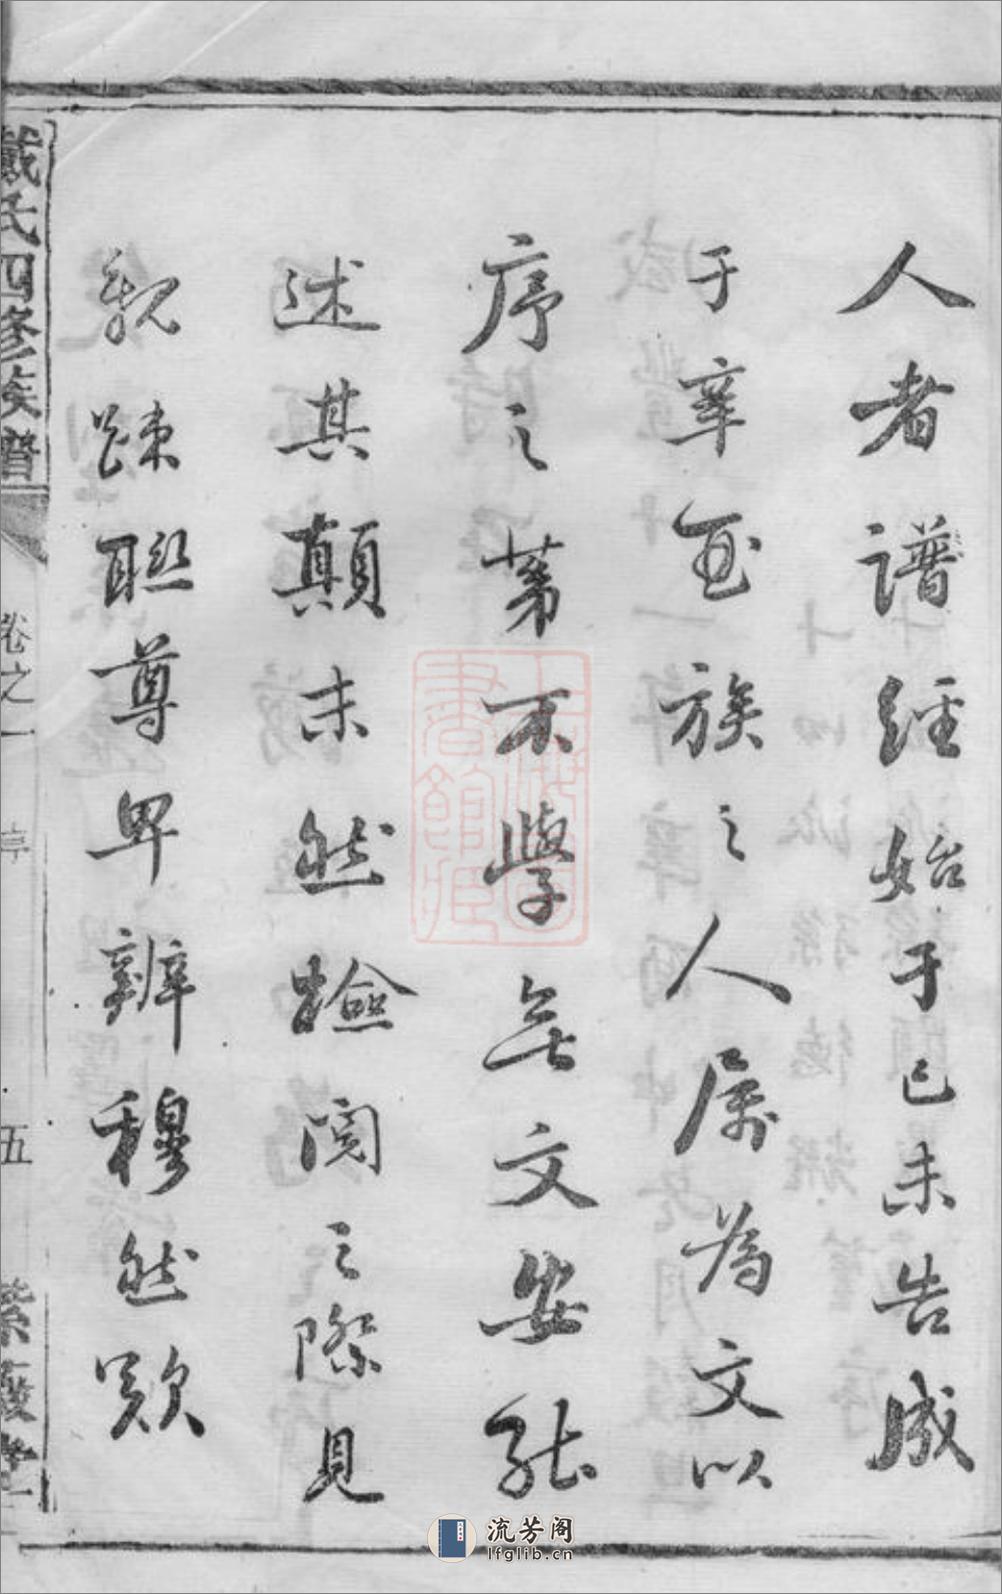 人者譜經始于己未告成
于辛酉族之人屬為文以
序之第不學無文安能
述其顛末然檢閱之際見
親疎聯尊卑辨穆然歎
戴氏四修族譜
卷之一
五
上海圖書館藏
流芳阁
lfglib.cn